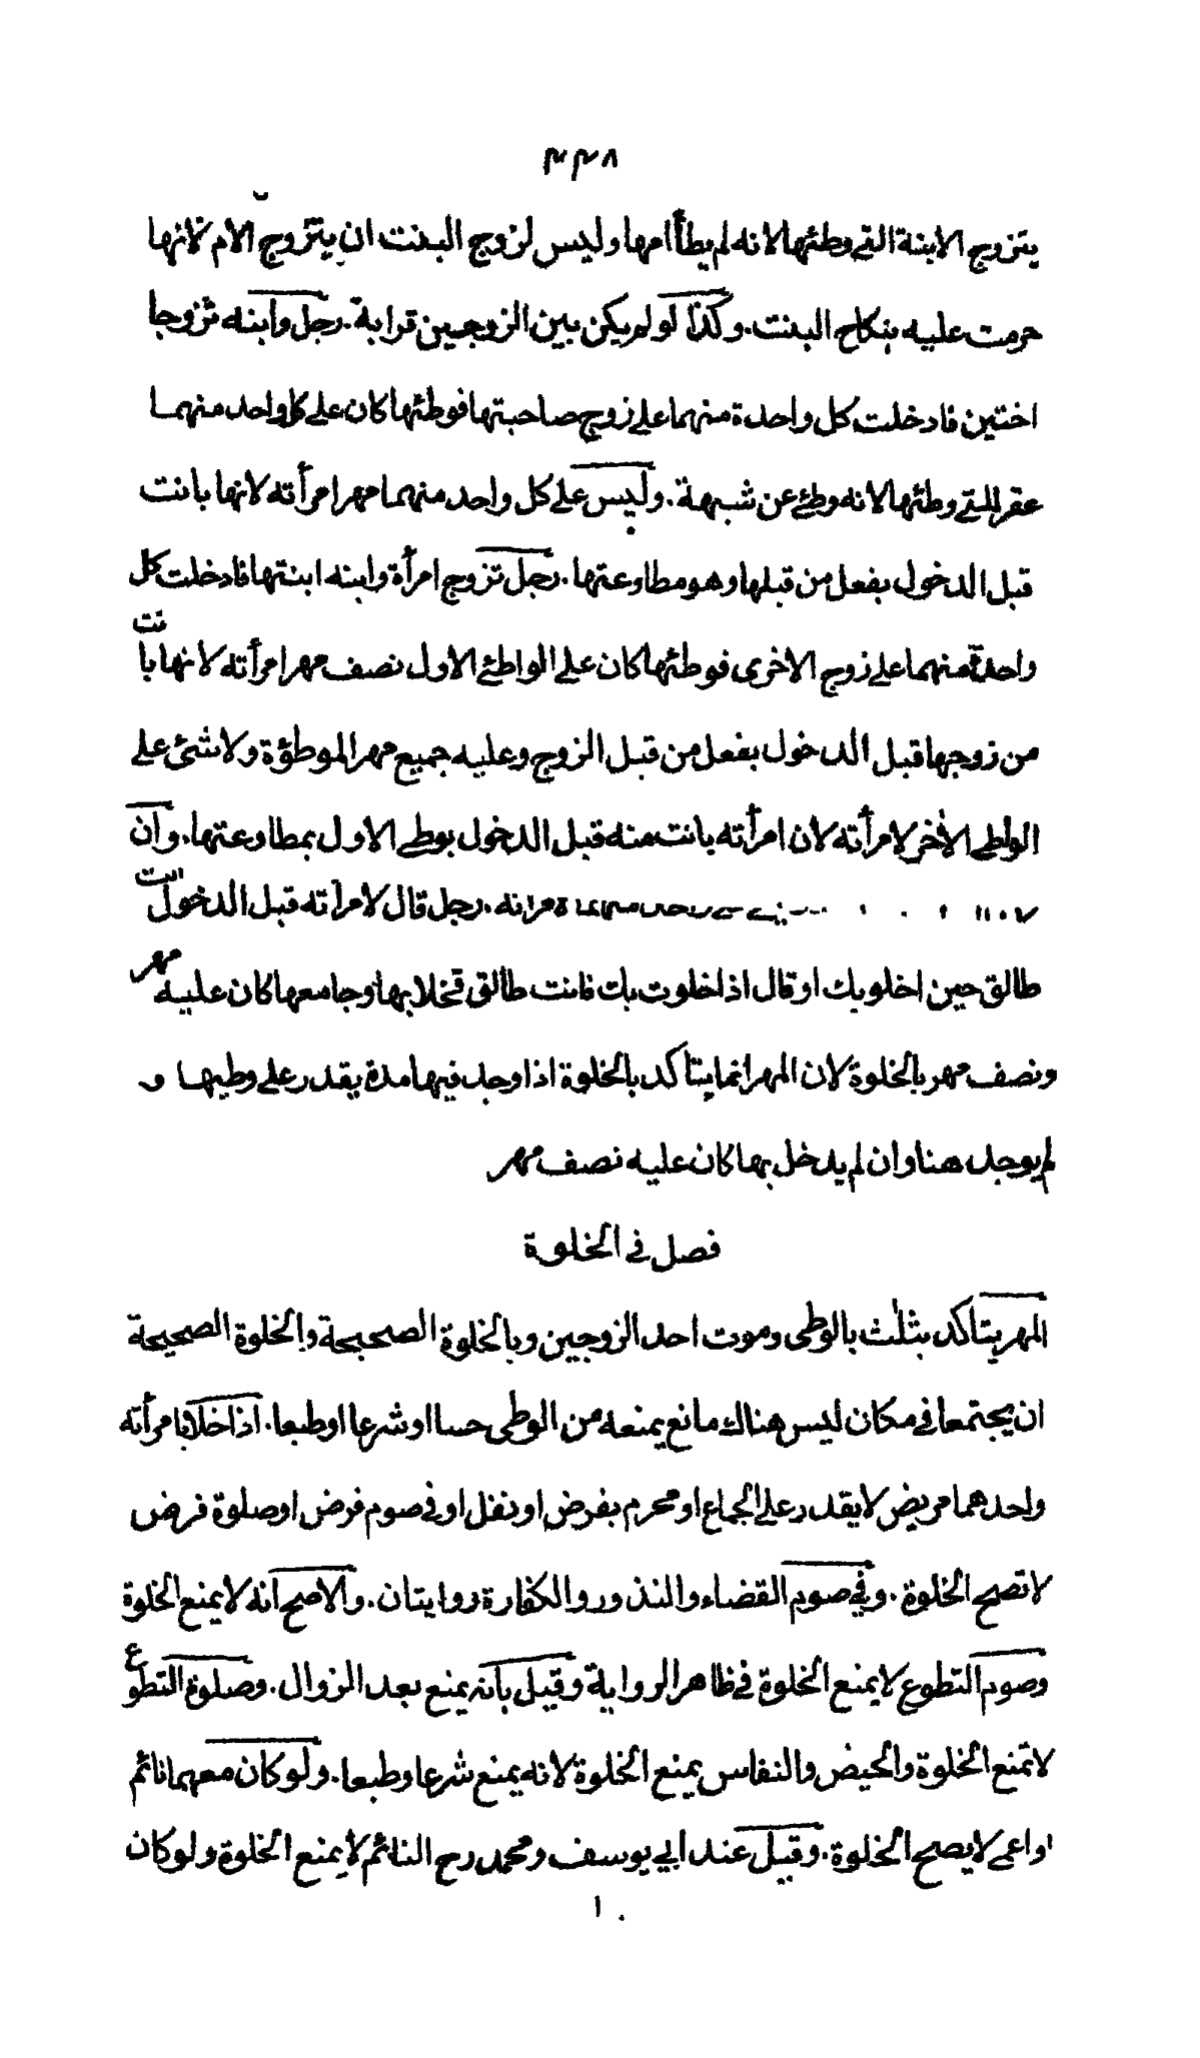 ٣٣٨
يتزوج الابنة التي وطئها لانه لم يطأ امها وليس لزوج البنت ان يتزوج الام لانها
حرمت عليه بنكاح البنت. وكذا لو لم يكن بين الزوجين قرابة. رجل وابنه تزوجا
اختين فادخلت كل واحدة منهما على زوج صاحبتها فوطئها كان على كل واحد منهما
عقر للتي وطئها لانه وطئ عن شبهة. وليس على كل واحد منهما مهر امرأته لانها بانت
قبل الدخول بفعل من قبلها وهو مطاوعتها. رجل تزوج امرأة وابنه ابنتها فادخلت كل
واحدة منهما على زوج الاخرى فوطئها كان على الواطئ الاول نصف مهر امرأته لانها بانت
من زوجها قبل الدخول بفعل من قبل الزوج وعليه جميع مهر الموطؤة ولا شئ على
الواطى الاخر لامرأته لان امرأته بانت منه قبل الدخول بوطى الاول بمطاوعتها. وان
رجل قال لامرأته قبل الدخول انت
طالق حين اخلو بك او قال اذا خلوت بك فانت طالق فخلا بها وجامعها كان عليه مهر
ونصف مهر بالخلوة لان المهر انما يتاكد بالخلوة اذا وجد فيها مدة يقدر على وطيها و
لم يوجد هنا وان لم يدخل بها كان عليه نصف مهر
فصل في الخلوة
المهر يتاكد بثلث بالوطى وموت احد الزوجين وبالخلوة الصحيحة والخلوة الصحيحة
ان يجتمعا في مكان ليس هناك مانع يمنعه من الوطى حسا او شرعا او طبعا. اذا خلا بامرأته
واحدهما مريض لا يقدر على الجماع او محرم بفرض او نفل او في صوم فرض او صلوة فرض
لا تصح الخلوة. وفي صوم القضاء والنذور والكفارة روايتان. والاصح انه لا يمنع الخلوة
وصوم التطوع لا يمنع الخلوة في ظاهر الرواية وقيل بانه يمنع بعد الزوال. وصلوة التطوع
لا تمنع الخلوة والحيض والنفاس يمنع الخلوة لانه يمنع شرعا وطبعا. ولو كان معهما نائم
او اعمى لا يصح الخلوة. وقيل عند ابي يوسف ومحمد رح النائم لا يمنع الخلوة ولو كان